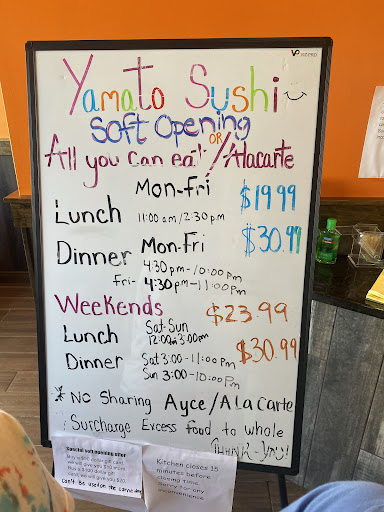 Yamato Sushi
Soft Opening
All you can eat / OR Alacarte
Mon-Fri
Lunch 11:00 am/2:30 pm $19.99
Dinner Mon-Fri $30.99
4:30 pm-10:00 pm
Fri- 4:30 pm-11:00 pm
Weekends $23.99
Lunch Sat-Sun
12:00 3:00 pm
Dinner Sat 3:00-11:00 pm $30.99
Sun 3:00-10:00 pm
* No Sharing Ayce/Ala Carte
Surcharge Excess food to whole
Thank-you!
Special soft opening offer
Can't be used on the same day
Kitchen closes 15
minutes before
closing time
sorry for any
inconvenience